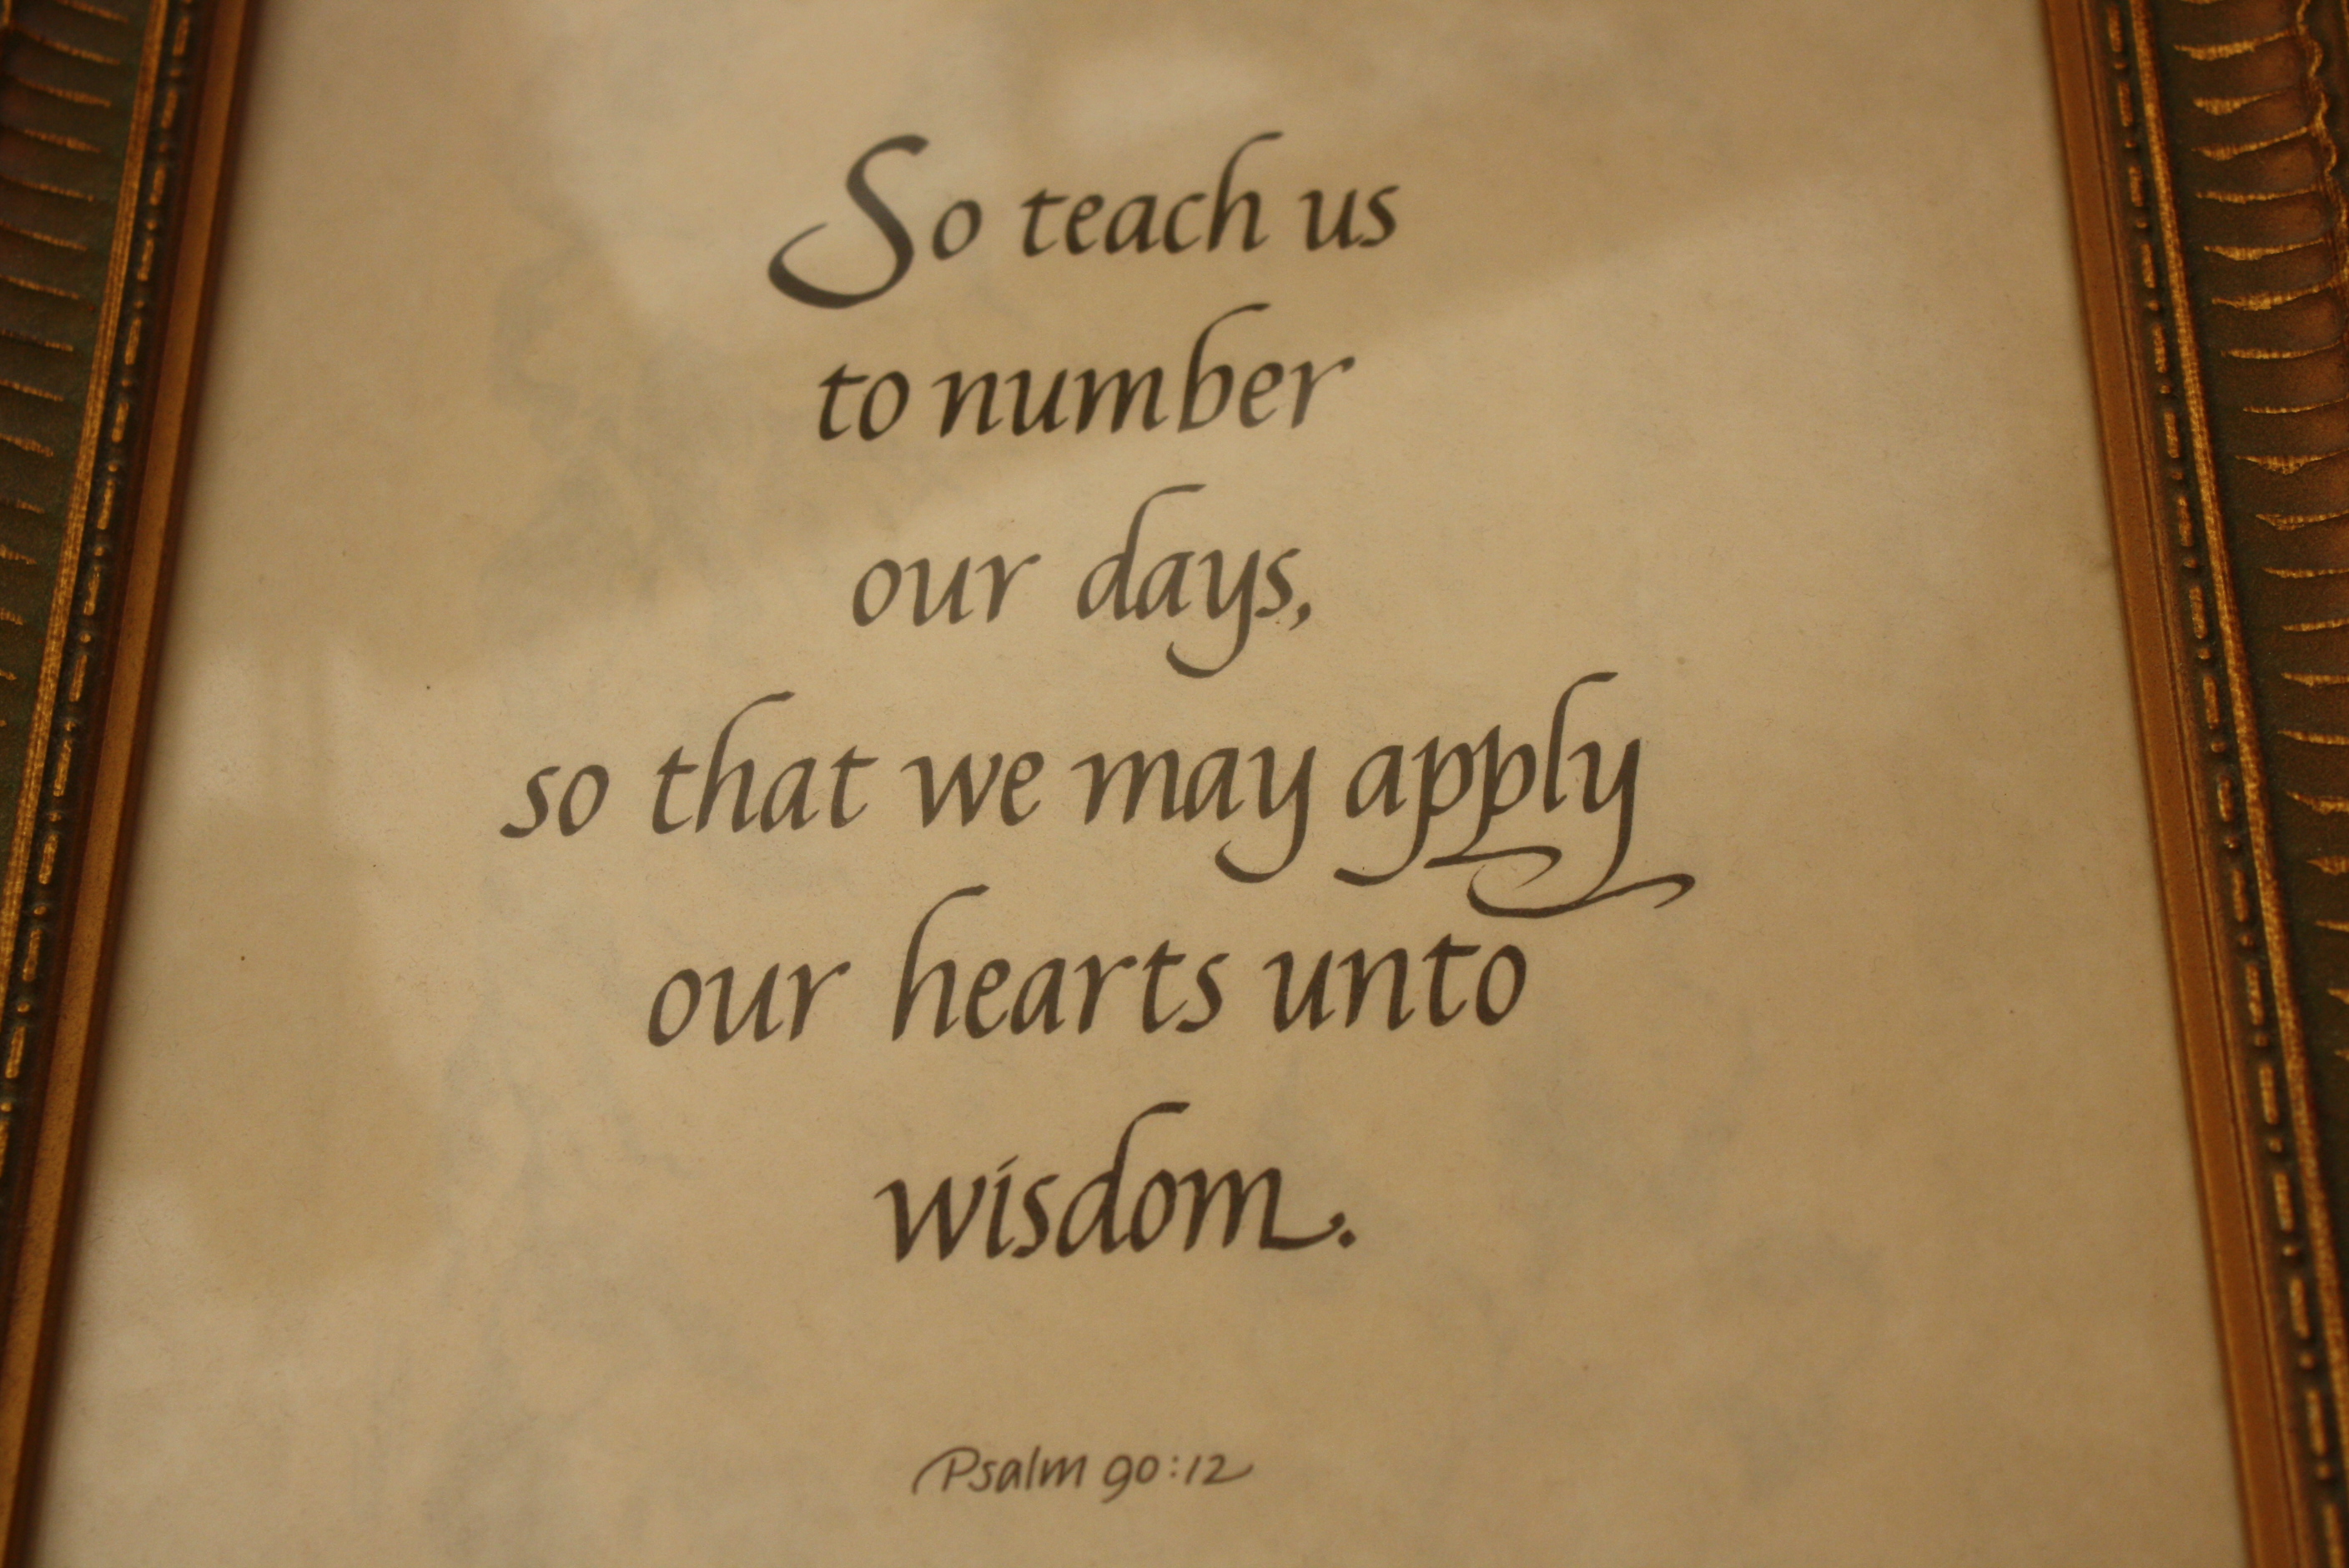 So teach us
to number
our days,
so that we may apply
our hearts unto
wisdom.
Psalm 90:12